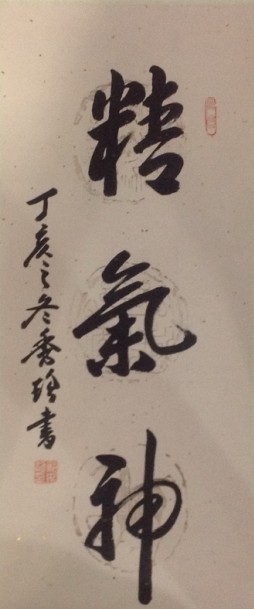 精氣神
丁亥之冬秀璿書